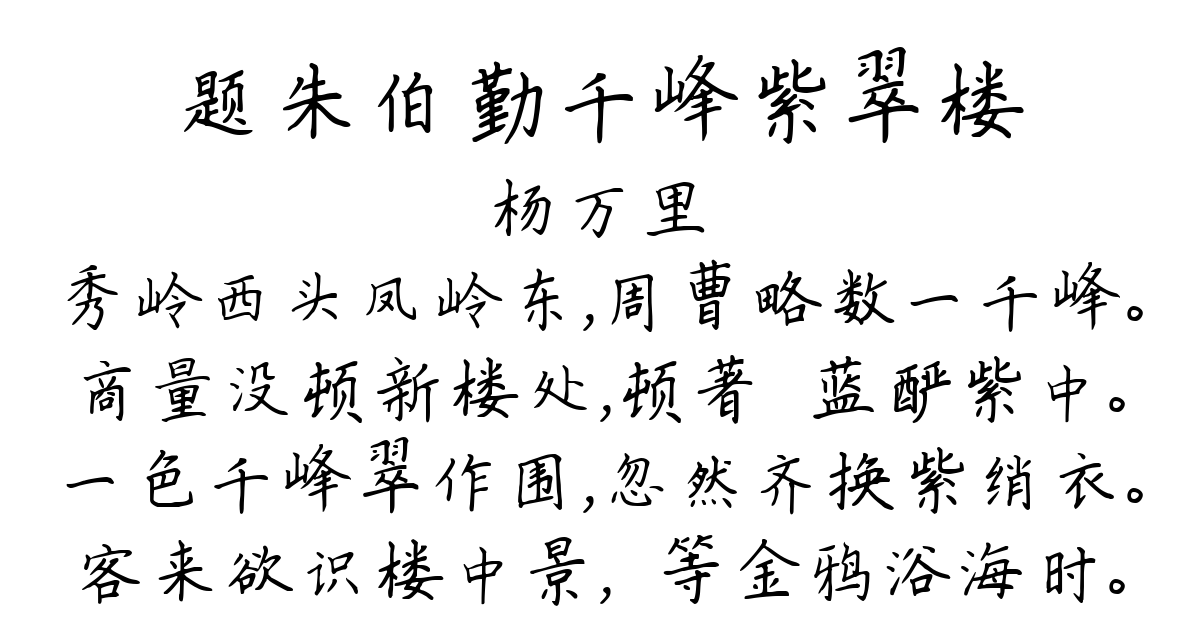 题朱伯勤千峰紫翠楼
杨万里
秀岭西头凤岭东,周曹略数一千峰。
商量没顿新楼处,顿著 蓝酽紫中。
一色千峰翠作围,忽然齐换紫绡衣。
客来欲识楼中景, 等金鸦浴海时。